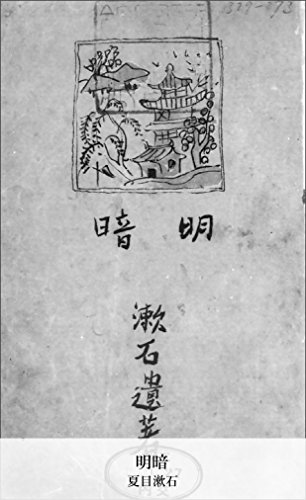 明暗
漱石遺著
明暗
夏目漱石